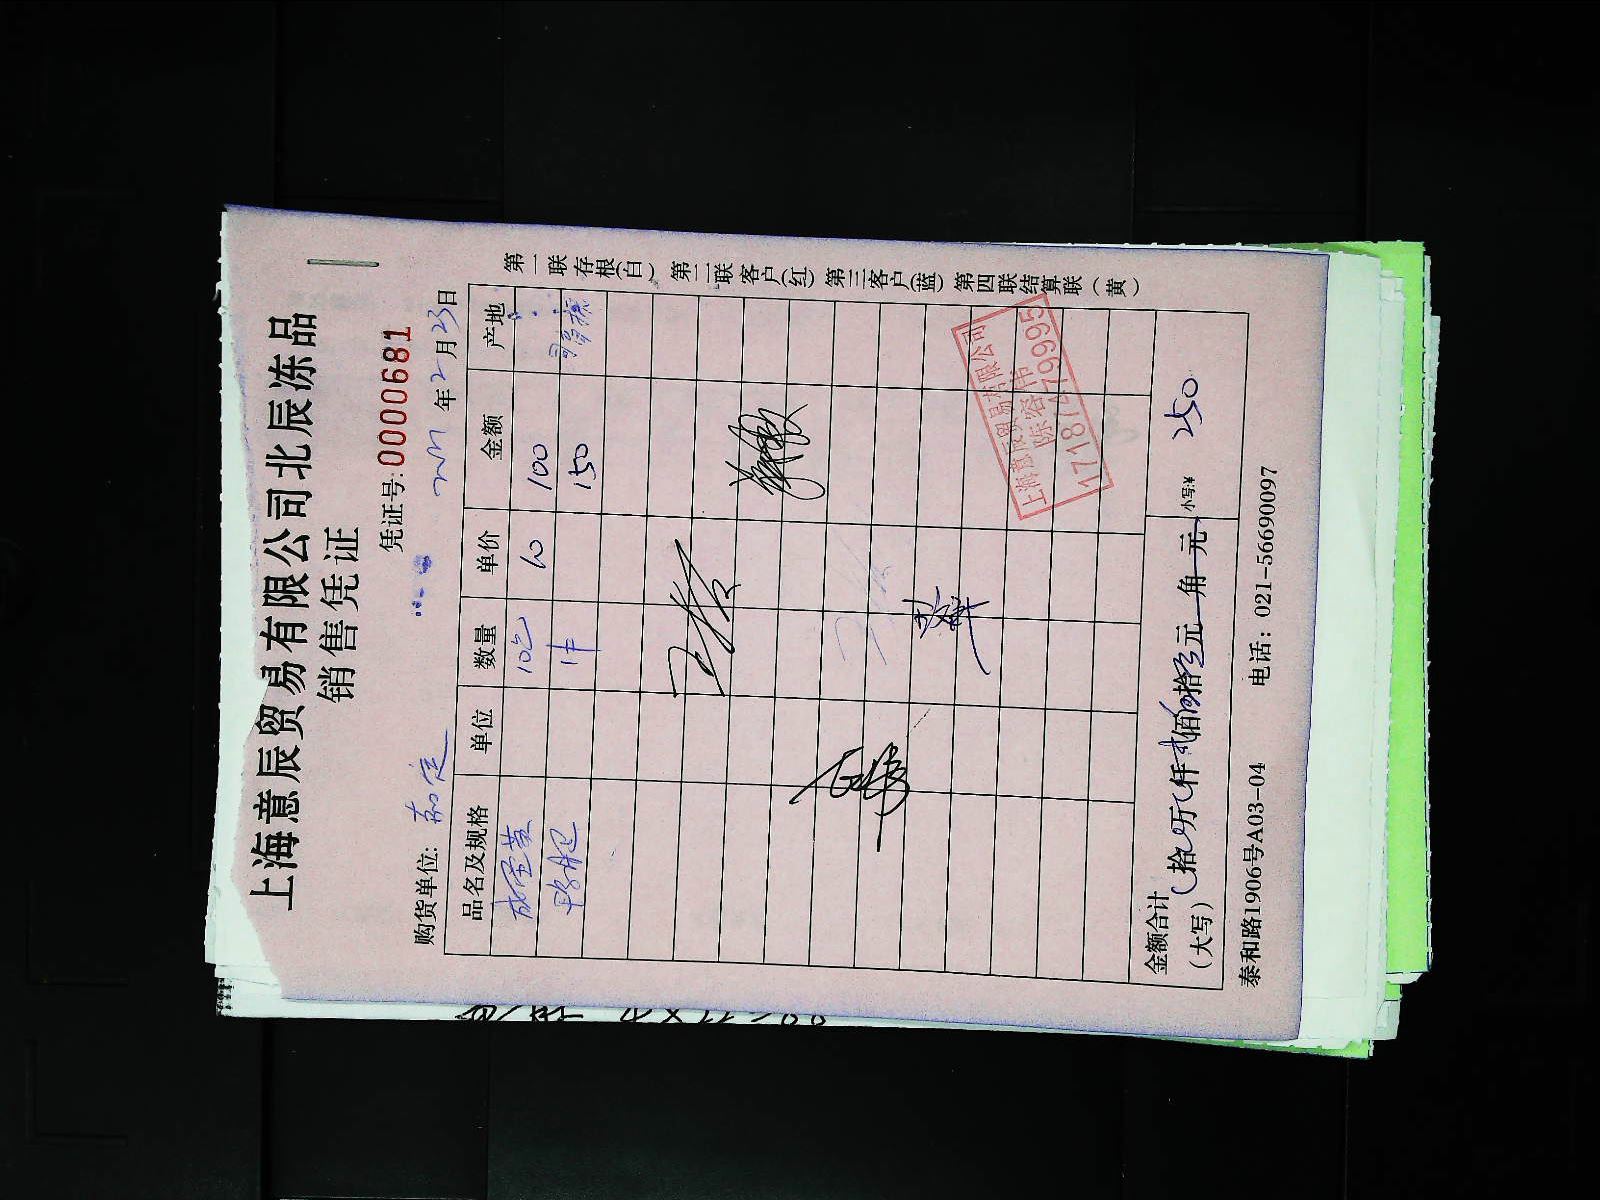 上海意辰贸易有限公司北辰冻品
销售凭证
凭证号:0000681
购货单位: 嘉定 年2月23日
品名及规格 单位 数量 单价 金额 产地
10包 10 100
鸭肫 1件 150
第一联存根(白) 第二联客户(红) 第三客户(蓝) 第四联结算联(黄)
上海意辰贸易有限公司
陈容伟
17181479995
金额合计
(大写) 拾 万 仟 贰佰伍拾元 角 元 小写:¥ 250
泰和路1906号A03-04 电话: 021-56690097